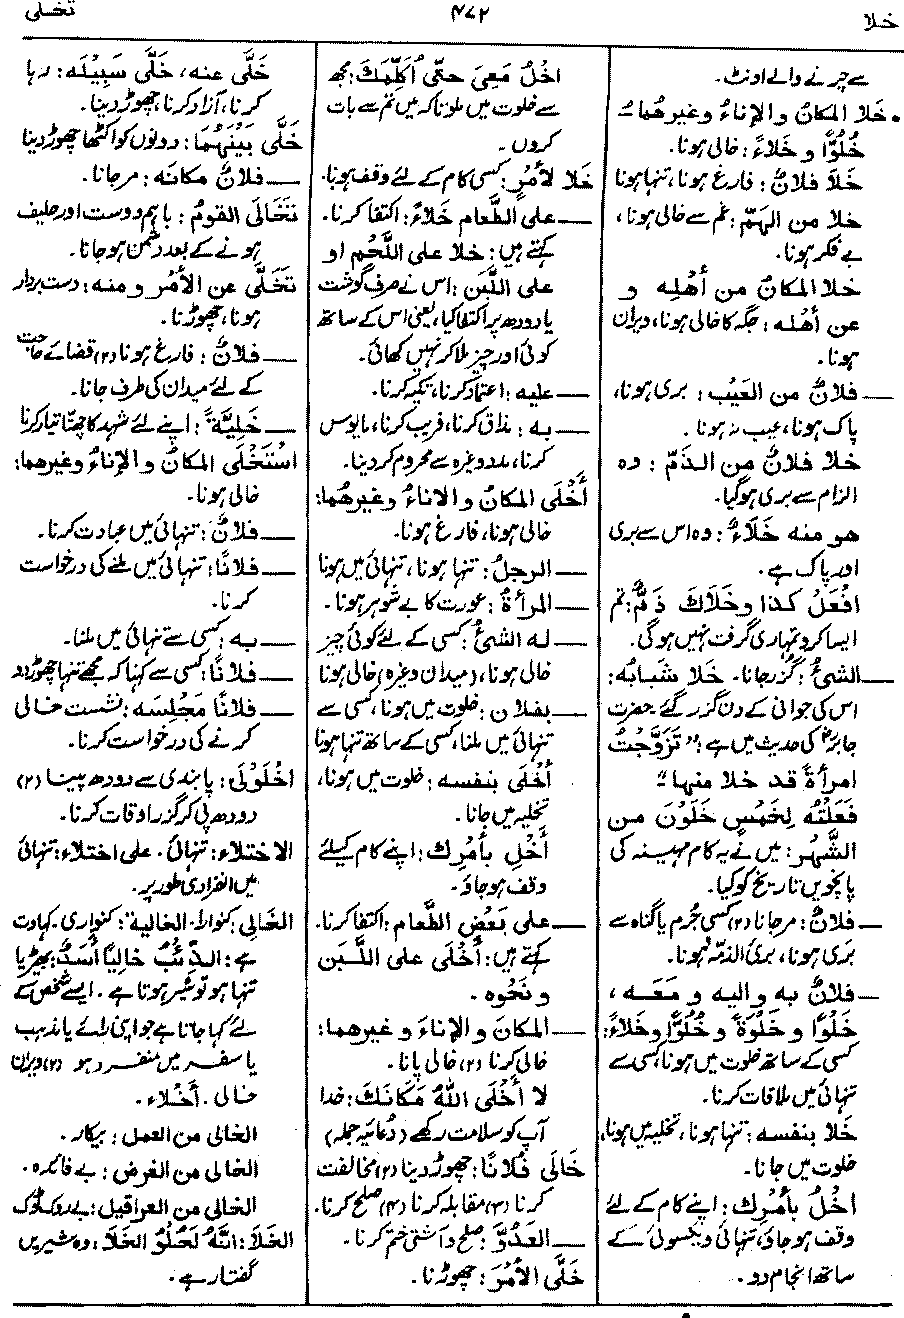 خلا
۴۷۲
تخلی
سے چرنے والے اونٹ۔
• خَلا المکانُ والإناءُ وغیرھماــُـ
خُلُوًّا و خَلاءً: خالی ہونا۔
خَلاَ فلانٌ: فارغ ہونا، تنہا ہونا
خلا من الهَمِّ: غم سے خالی ہونا،
بے فکر ہونا۔
خلا المکانُ من أَهْلِه و
عن أهْله: جگہ کا خالی ہونا، ویران
ہونا۔
— فلانٌ من العَیْب: بری ہونا،
پاک ہونا، عیب نہ ہونا۔
خلا فلانٌ من الذَمّ: وہ
الزام سے بری ہوگیا۔
هو منه خَلَاءٌ: وہ اس سے بری
اور پاک ہے۔
افْعَلْ کذا وخَلَاكَ ذَمٌّ: تم
ایسا کرو تمہاری گرفت نہیں ہوگی۔
— الشئُ: گزر جانا۔ خَلا شَبابُه:
اس کی جوانی کے دن گزر گئے۔ حضرت
جابرؓ کی حدیث میں ہے: "تَزَوَّجْتُ
امرأةً قد خلا منها"
فَعَلْتُه لِخَمْسٍ خَلَوْنَ من
الشَّهْر: میں نے یہ کام مہینہ کی
پانچویں تاریخ کو کیا۔
— فلانٌ: مرجانا (۲) کسی جُرم یا گناہ سے
بَری ہونا، بری الذمّہ ہونا۔
— فلانٌ به و الیه و مَعَه،
خَلْوًا و خَلْوَةً و خُلُوًّا وخَلاءً:
کسی کے ساتھ خلوت میں ہونا، کسی سے
تنہائی میں ملاقات کرنا۔
خلا بنفسه: تنہا ہونا، تخلیہ میں ہونا،
خلوت میں جانا۔
اخْلُ بأمْرِك: اپنے کام کے لئے
وقف ہو جاؤ، تنہائی و یکسوئی کے
ساتھ انجام دو۔
اخْلُ مَعِیَ حتّٰی أُکَلِّمَكَ: مجھ
سے خلوت میں ملو تاکہ میں تم سے بات
کروں۔
خَلا لِأمْرٍ: کسی کام کے لئے وقف ہونا۔
— علی الطَّعام خَلاءً: اکتفا کرنا۔
کہتے ہیں: خلا علی اللَّحْم او
علی اللَّبَن: اس نے صرف گوشت
یا دودھ پر اکتفا کیا، یعنی اس کے ساتھ
کوئی اور چیز ملا کر نہیں کھائی۔
— علیه: اعتماد کرنا، تکیہ کرنا۔
— به: مذاق کرنا، فریب کرنا، مایوس
کرنا، مدد وغیرہ سے محروم کر دینا۔
أَخْلَی المکانُ والاناءُ وغیرهُما:
خالی ہونا، فارغ ہونا۔
— الرجلُ: تنہا ہونا، تنہائی میں ہونا
— المرأةُ: عورت کا بے شوہر ہونا۔
— له الشئُ: کسی کے لئے کوئی چیز
خالی ہونا، (میدان وغیرہ) خالی ہونا
— بفلان: خلوت میں ہونا، کسی سے
تنہائی میں ملنا، کسی کے ساتھ تنہا ہونا
أَخْلَی بنفسه: خلوت میں ہونا،
تخلیہ میں جانا۔
أَخْلِ بأمْرِك: اپنے کام کیلئے
وقف ہو جاؤ۔
— علی بَعْضِ الطَّعام: اکتفا کرنا۔
کہتے ہیں: أَخْلَی علی اللَّبَن
و نَحْوِه۔
— المکانَ والإناءَ وغیرهما:
خالی کرنا (۲) خالی پانا۔
لا أَخْلَی اللهُ مَکانَكَ: خدا
آپ کو سلامت رکھے (دُعائیہ جملہ)
خَالَی فُلانًا: چھوڑ دینا (۲) مخالفت
کرنا (۳) مقابلہ کرنا (۴) صلح کرنا۔
— العَدُوَّ: صلح و آشتی ختم کرنا۔
خَلَّی الأمْرَ: چھوڑنا۔
خَلَّی عنه، خَلَّی سَبِیْلَه: رہا
کرنا، آزاد کرنا، چھوڑ دینا۔
خَلَّی بَیْنَهُمَا: دونوں کو اکٹھا چھوڑ دینا
— فلانٌ مکانَه: مرجانا۔
تَخَالَی القومُ: باہم دوست اور حلیف
ہونے کے بعد دشمن ہو جانا۔
تَخَلَّی عن الأمْر ومنه: دست بردار
ہونا، چھوڑنا۔
— فلانٌ: فارغ ہونا (۲) قضائے حاجت
کے لئے میدان کی طرف جانا۔
— خَلِیَّةً: اپنے لئے شہد کا چھتا تیار کرنا
اسْتَخْلَی المکانُ والإناءُ وغیرهما:
خالی ہونا۔
— فلانٌ: تنہائی میں عبادت کرنا۔
— فلانًا: تنہائی میں ملنے کی درخواست
کرنا۔
— به: کسی سے تنہائی میں ملنا۔
— فلانًا: کسی سے کہنا کہ مجھے تنہا چھوڑ دو
— فلانًا مَجْلِسَه: نشست خالی
کرنے کی درخواست کرنا۔
اخْلَوْلَی: پابندی سے دودھ پینا (۲)
دودھ پی کر گزر اوقات کرنا۔
الاختلاء: تنہائی۔ علی اختلاء: تنہائی
میں انفرادی طور پر۔
الخَالی: کنوارا۔ الخالیة: کنواری۔ کہاوت
ہے: الذِّئْبُ خالیًا أَسَدٌ: بھیڑیا
تنہا ہو تو شیر ہوتا ہے۔ ایسے شخص کے
لئے کہا جاتا ہے جو اپنی رائے یا مذہب
یا سفر میں منفرد ہو (۲) ویران
خالی۔ أَخْلاء۔
الخالی من العمل: بیکار۔
الخالی من الغرض: بے فائدہ۔
الخالی من العراقیل: بے روک ٹوک
الخَلَا: انَّهُ لَحُلْوُ الخَلَا: وہ شیریں
گفتار ہے۔